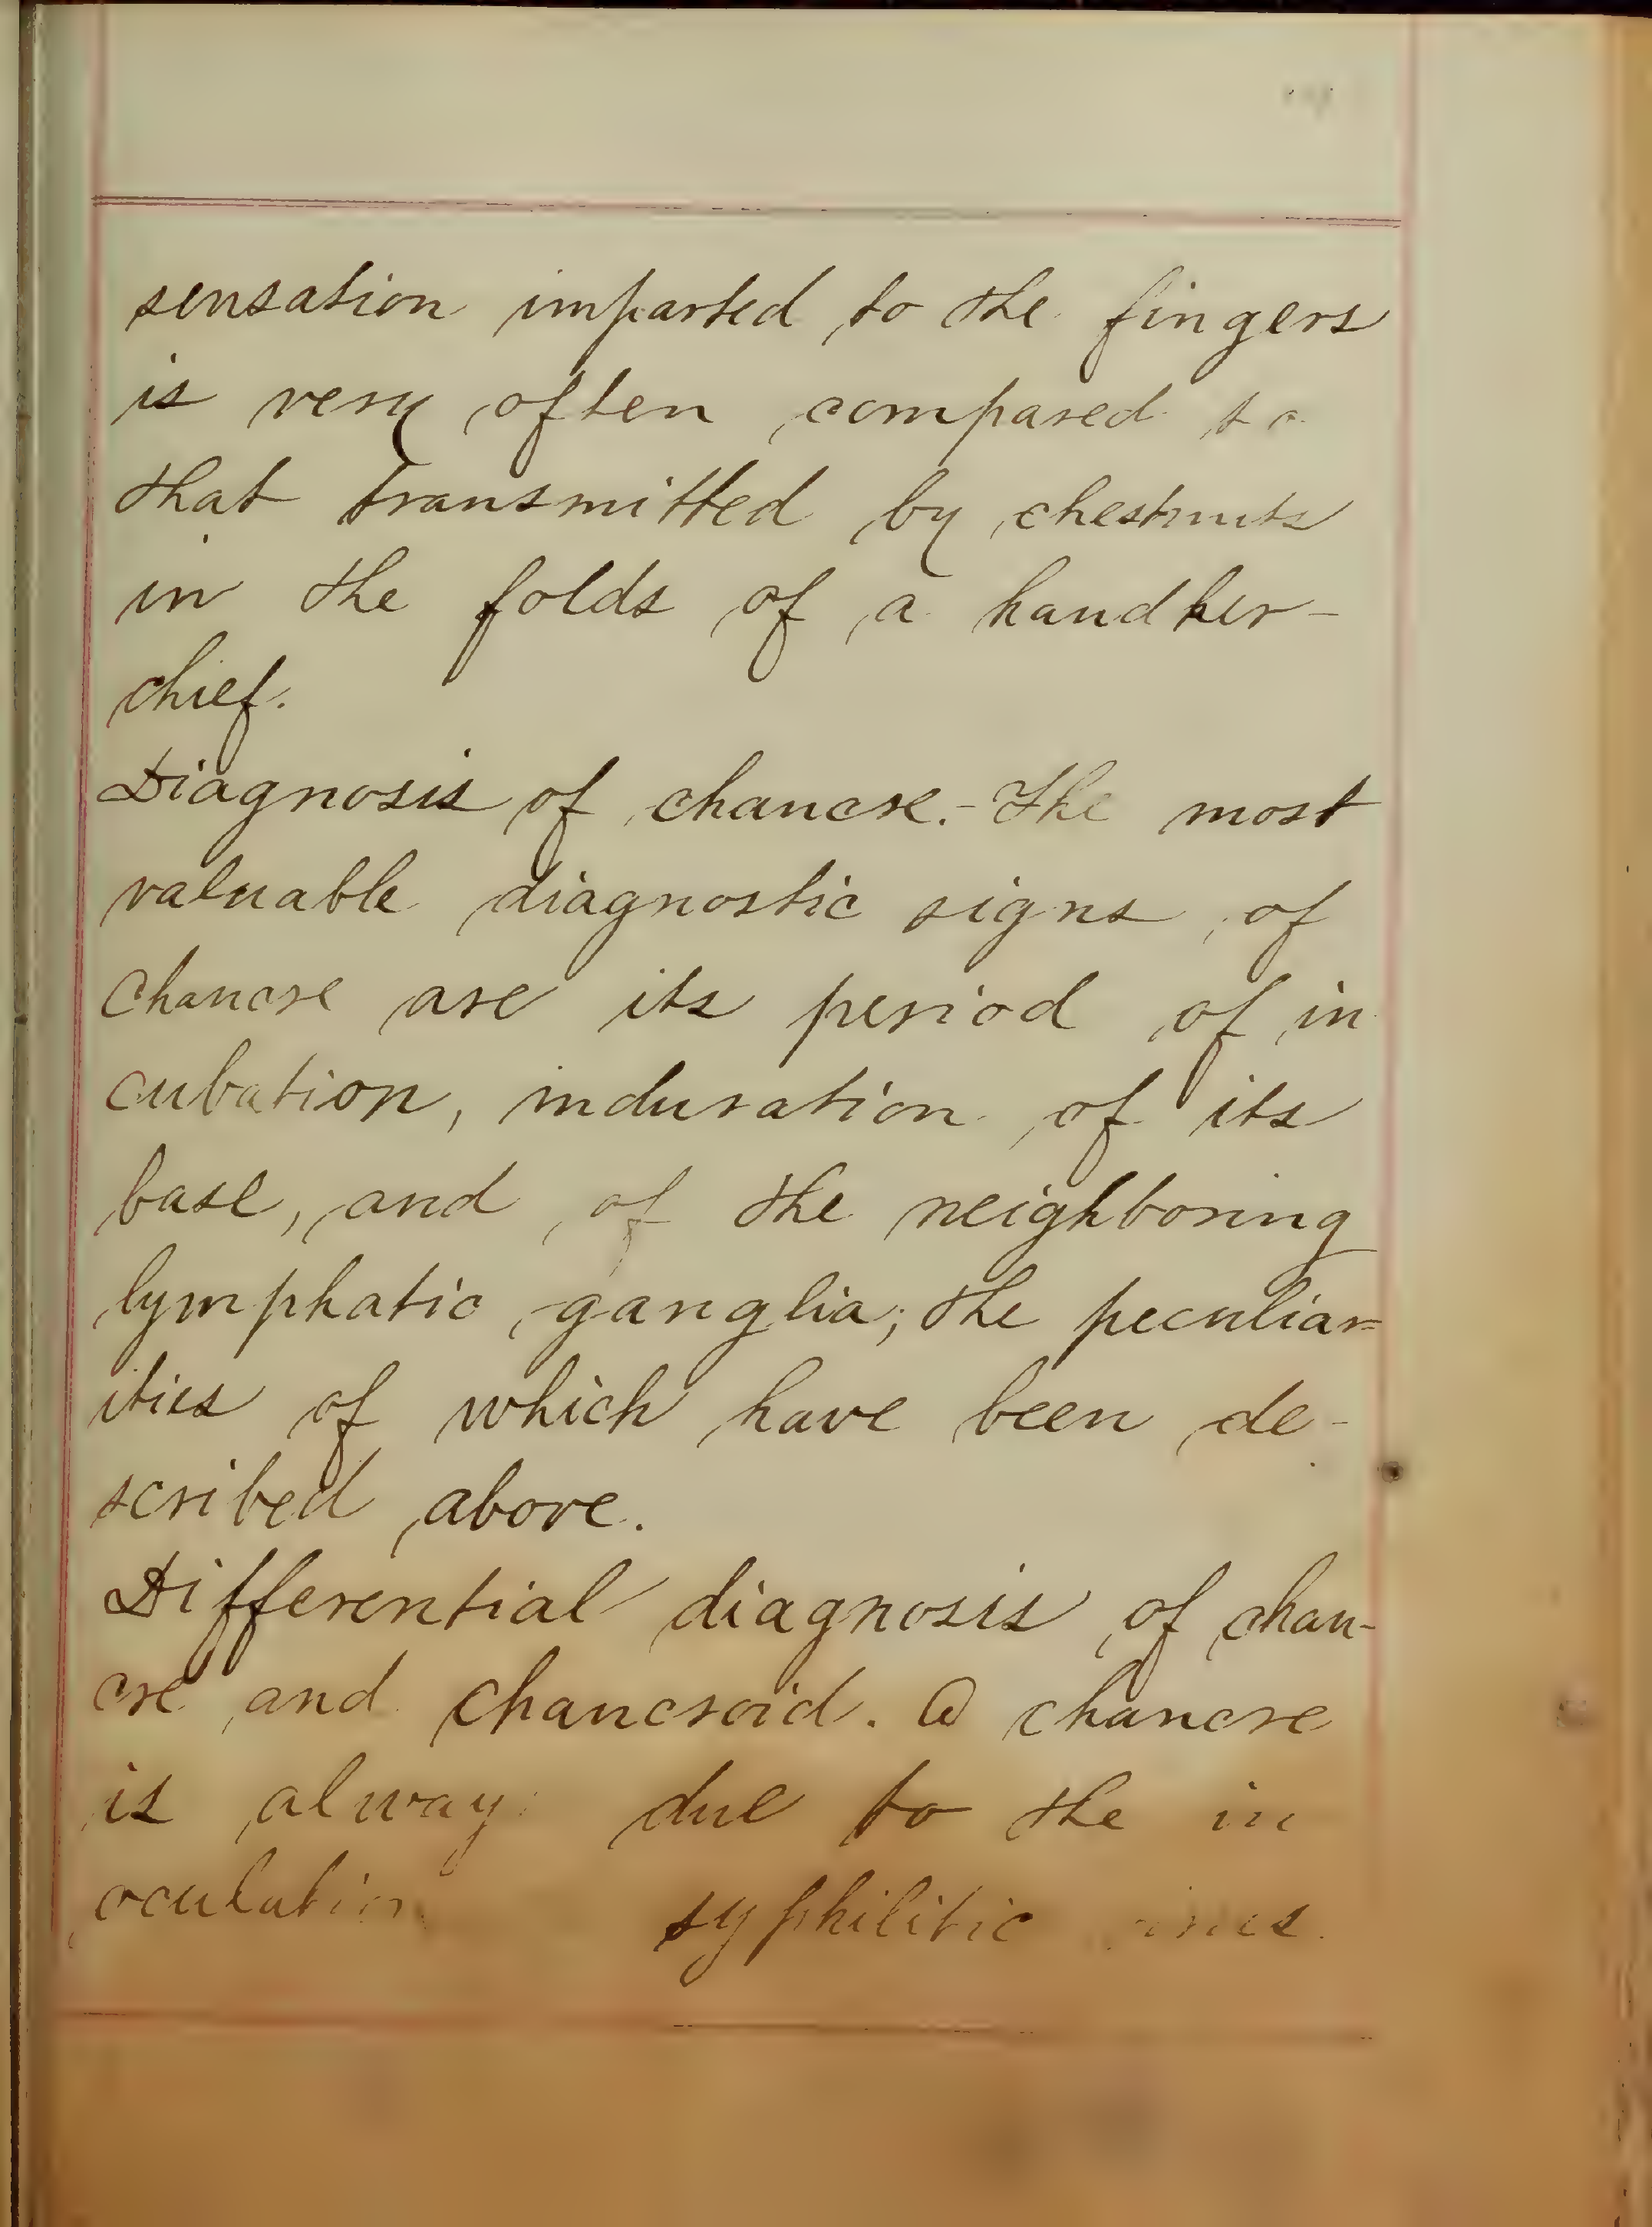 sensation imparted to the fingers
is very often compared to
that transmitted by chestnuts
in the folds of a handker-
chief.
Diagnosis of chancre.- The most
valuable diagnostic signs of
chancre are its period of in
cubation, induration of its
base, and of the neighboring
lymphatic ganglia; the peculiar=
ities of which have been de-
scribed above.
Differential diagnosis of chan-
cre and chancroid. A chancre
is alway due to the in
oculation syphilitic